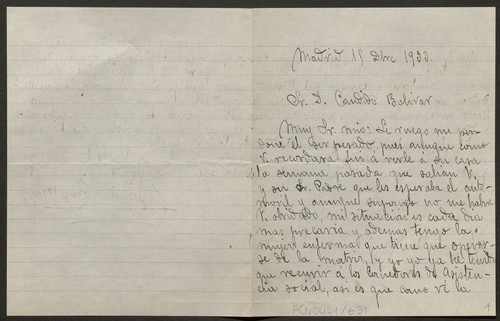 Madrid 15 Dbre 1933.
Sr. D. Candido Bolivar
Muy Sr. mio: Le ruego me per-
done el ser pesado, pues aunque como
V. recordará fui a verle a su casa
la semana pasada que salian V.
y su Sr. Padre que les esperaba el auto-
movil y aunque supongo no me habra
V. olvidado, mi situacion es cada dia
mas precaria, y ademas tengo la
mujer enferma que tiene que operar-
se de la matriz, y yo ya he tenido
que recurrir a los Comedores de Asisten-
cia social, asi es que como ve la
ACN0441/031
1